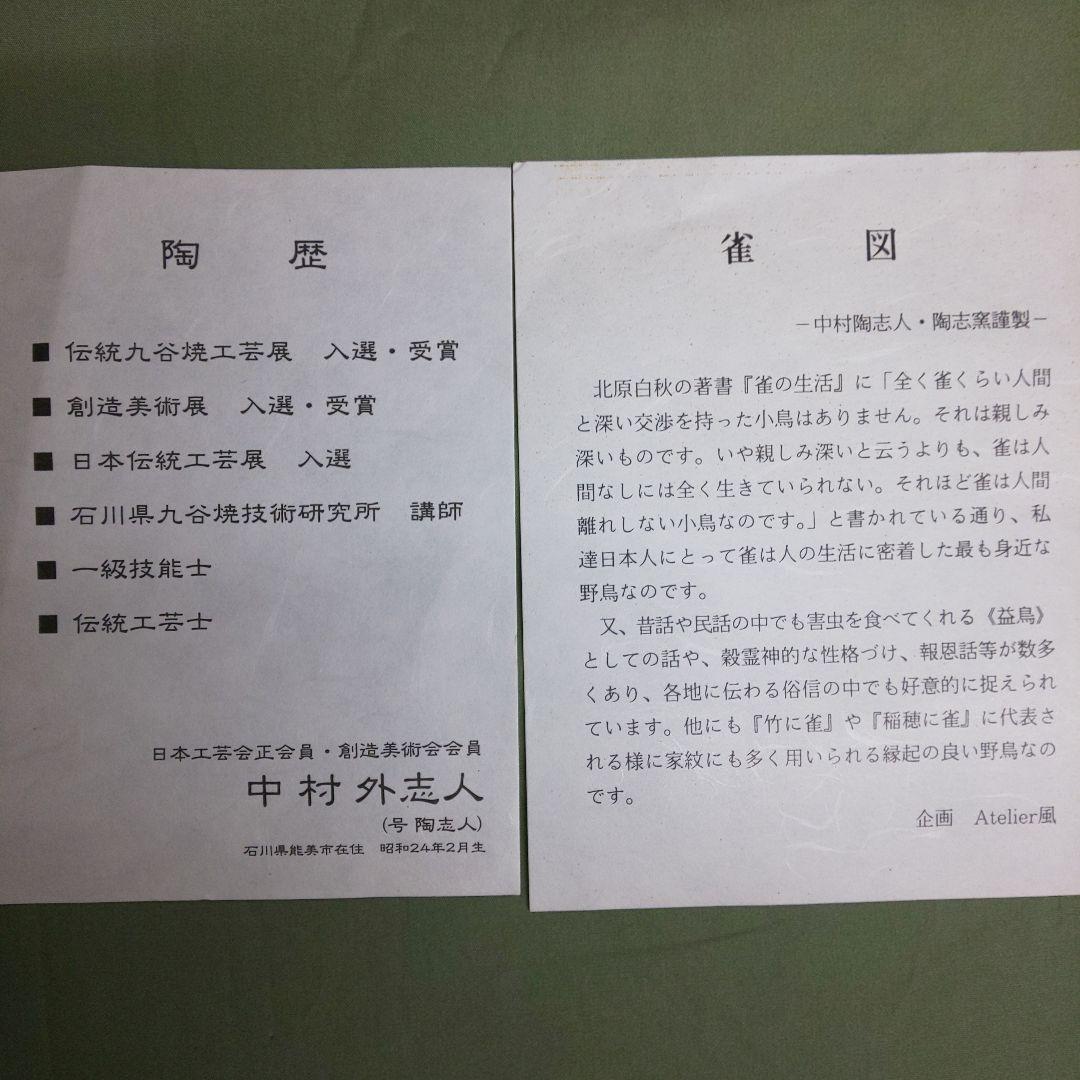 陶 歴
■ 伝統九谷焼工芸展 入選・受賞
■ 創造美術展 入選・受賞
■ 日本伝統工芸展 入選
■ 石川県九谷焼技術研究所 講師
■ 一級技能士
■ 伝統工芸士
日本工芸会正会員・創造美術会会員
中村外志人
(号 陶志人)
石川県能美市在住 昭和24年2月生
雀 図
－中村陶志人・陶志窯謹製－
北原白秋の著書『雀の生活』に「全く雀くらい人間
と深い交渉を持った小鳥はありません。それは親しみ
深いものです。いや親しみ深いと云うよりも、雀は人
間なしには全く生きていられない。それほど雀は人間
離れしない小鳥なのです。」と書かれている通り、私
達日本人にとって雀は人の生活に密着した最も身近な
野鳥なのです。
又、昔話や民話の中でも害虫を食べてくれる《益鳥》
としての話や、穀霊神的な性格づけ、報恩話等が数多
くあり、各地に伝わる俗信の中でも好意的に捉えられ
ています。他にも『竹に雀』や『稲穂に雀』に代表さ
れる様に家紋にも多く用いられる縁起の良い野鳥なの
です。
企画 Atelier風